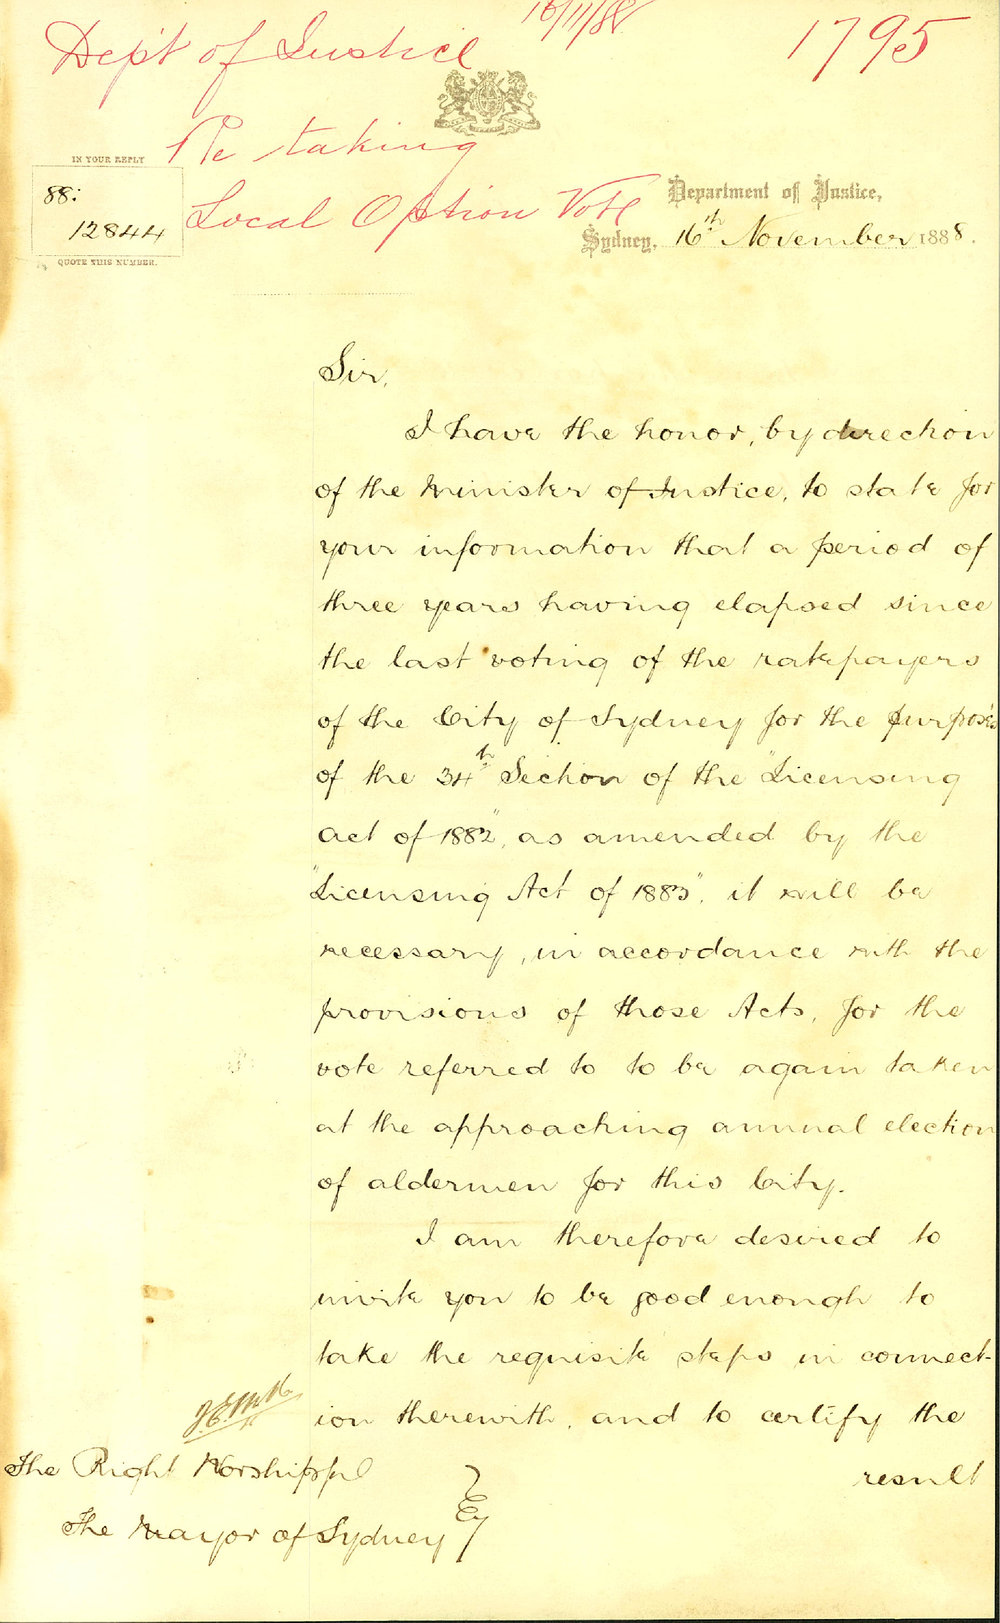 16/11/88
Dep't of Justice
1795
Re taking
Local Option Vote
IN YOUR REPLY
88:
12844
QUOTE THIS NUMBER.
Department of Justice,
Sydney, 16th November 1888.
Sir,
I have the honor, by direction
of the Minister of Justice, to state for
your information that a period of
three years having elapsed since
the last voting of the ratepayers
of the City of Sydney for the purposes
of the 34th Section of the "Licensing
Act of 1882", as amended by the
"Licensing Act of 1883", it will be
necessary, in accordance with the
provisions of those Acts, for the
vote referred to to be again taken
at the approaching annual election
of aldermen for this City.
I am therefore desired to
invite you to be good enough to
take the requisite steps in connect-
ion therewith, and to certify the
result
The Right Worshipful
The Mayor of Sydney